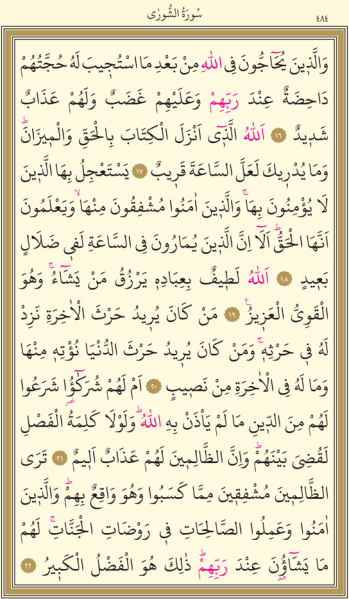 سُورَةُ الشُّورٰى ٤٨٤
وَالَّذ۪ينَ يُحَٓاجُّونَ فِي اللّٰهِ مِنْ بَعْدِ مَا اسْتُج۪يبَ لَهُ حُجَّتُهُمْ
دَاحِضَةٌ عِنْدَ رَبِّهِمْ وَعَلَيْهِمْ غَضَبٌ وَلَهُمْ عَذَابٌ
شَد۪يدٌ ﴿١٦﴾ اَللّٰهُ الَّذ۪ٓي اَنْزَلَ الْكِتَابَ بِالْحَقِّ وَالْم۪يزَانَۜ
وَمَا يُدْر۪يكَ لَعَلَّ السَّاعَةَ قَر۪يبٌ ﴿١٧﴾ يَسْتَعْجِلُ بِهَا الَّذ۪ينَ
لَا يُؤْمِنُونَ بِهَاۚ وَالَّذ۪ينَ اٰمَنُوا مُشْفِقُونَ مِنْهَاۙ وَيَعْلَمُونَ
اَنَّهَا الْحَقُّۜ اَلَٓا اِنَّ الَّذ۪ينَ يُمَارُونَ فِي السَّاعَةِ لَف۪ي ضَلَالٍ
بَع۪يدٍ ﴿١٨﴾ اَللّٰهُ لَط۪يفٌ بِعِبَادِه۪ يَرْزُقُ مَنْ يَشَٓاءُۚ وَهُوَ
الْقَوِيُّ الْعَز۪يزُ۟ ﴿١٩﴾ مَنْ كَانَ يُر۪يدُ حَرْثَ الْاٰخِرَةِ نَزِدْ
لَهُ ف۪ي حَرْثِه۪ۚ وَمَنْ كَانَ يُر۪يدُ حَرْثَ الدُّنْيَا نُؤْتِه۪ مِنْهَا
وَمَا لَهُ فِي الْاٰخِرَةِ مِنْ نَص۪يبٍ ﴿٢٠﴾ اَمْ لَهُمْ شُرَكٰٓؤُ۬ا شَرَعُوا
لَهُمْ مِنَ الدّ۪ينِ مَا لَمْ يَأْذَنْ بِهِ اللّٰهُۜ وَلَوْلَا كَلِمَةُ الْفَصْلِ
لَقُضِيَ بَيْنَهُمْۜ وَاِنَّ الظَّالِم۪ينَ لَهُمْ عَذَابٌ اَل۪يمٌ ﴿٢١﴾ تَرَى
الظَّالِم۪ينَ مُشْفِق۪ينَ مِمَّا كَسَبُوا وَهُوَ وَاقِعٌ بِهِمْۜ وَالَّذ۪ينَ
اٰمَنُوا وَعَمِلُوا الصَّالِحَاتِ ف۪ي رَوْضَاتِ الْجَنَّاتِۚ لَهُمْ
مَا يَشَٓاؤُ۫نَ عِنْدَ رَبِّهِمْۜ ذٰلِكَ هُوَ الْفَضْلُ الْكَب۪يرُ ﴿٢٢﴾